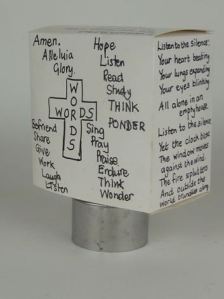 Amen.
Alleluia
Glory.
Hope
Listen
Read
Study
THINK
PONDER
WORDS
WORDS
Befriend
Share
Give
Work
Laugh
Listen
Sing
Pray
Praise
Endure
Think
Wonder
Listen to the silence:
Your heart beating
Your lungs expanding
Your eyes blinking
All alone in an
empty house.
Listen to the silence
Yet the clock ticks
The window moves
against the wind.
The fire splutters
And outside the
world trundles along